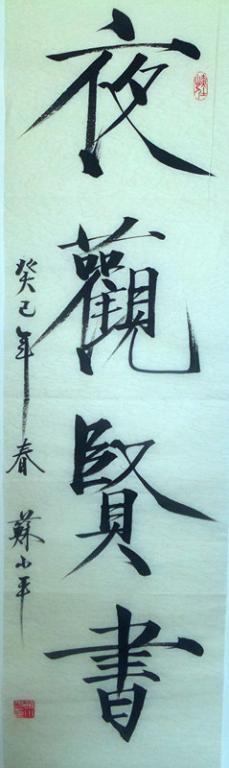 夜觀賢書
癸巳年春 蘇小平